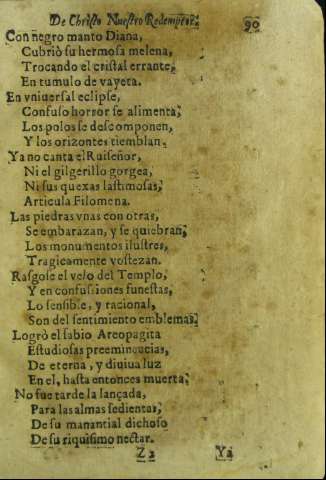 De Christo Nuestro Redemptor. 90
Con negro manto Diana,
Cubriò su hermosa melena,
Trocando el cristal errante,
En tumulo de vayeta.
En vniuersal eclipse,
Confuso horror se alimenta;
Los polos se descomponen,
Y los orizontes tiemblan.
Ya no canta el Ruiseñor,
Ni el gilgerillo gorgea,
Ni sus quexas lastimosas;
Articula Filomena.
Las piedras vnas con otras,
Se embarazan, y se quiebran;
Los monumentos ilustres,
Tragicamente vostezan.
Rasgose el velo del Templo,
Y en confussiones funestas,
Lo sensible, y racional,
Son del sentimiento emblemas;
Logrò el sabio Areopagita
Estudiosas preeminencias,
De eterna, y diuiua luz
En el, hasta entonces muerta;
No fue tarde la lançada,
Para las almas sedientas;
De su manantial dichoso
De su riquisimo nectar.
Z2 Ya